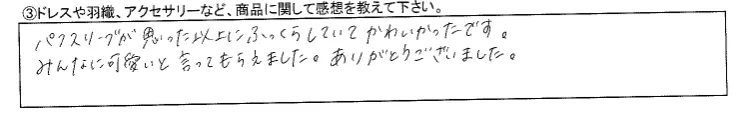 ③ドレスや羽織、アクセサリーなど、商品に関して感想を教えて下さい。
パフスリーブが思った以上にふっくらしていてかわいかったです。
みんなに可愛いと言ってもらえました。ありがとうございました。